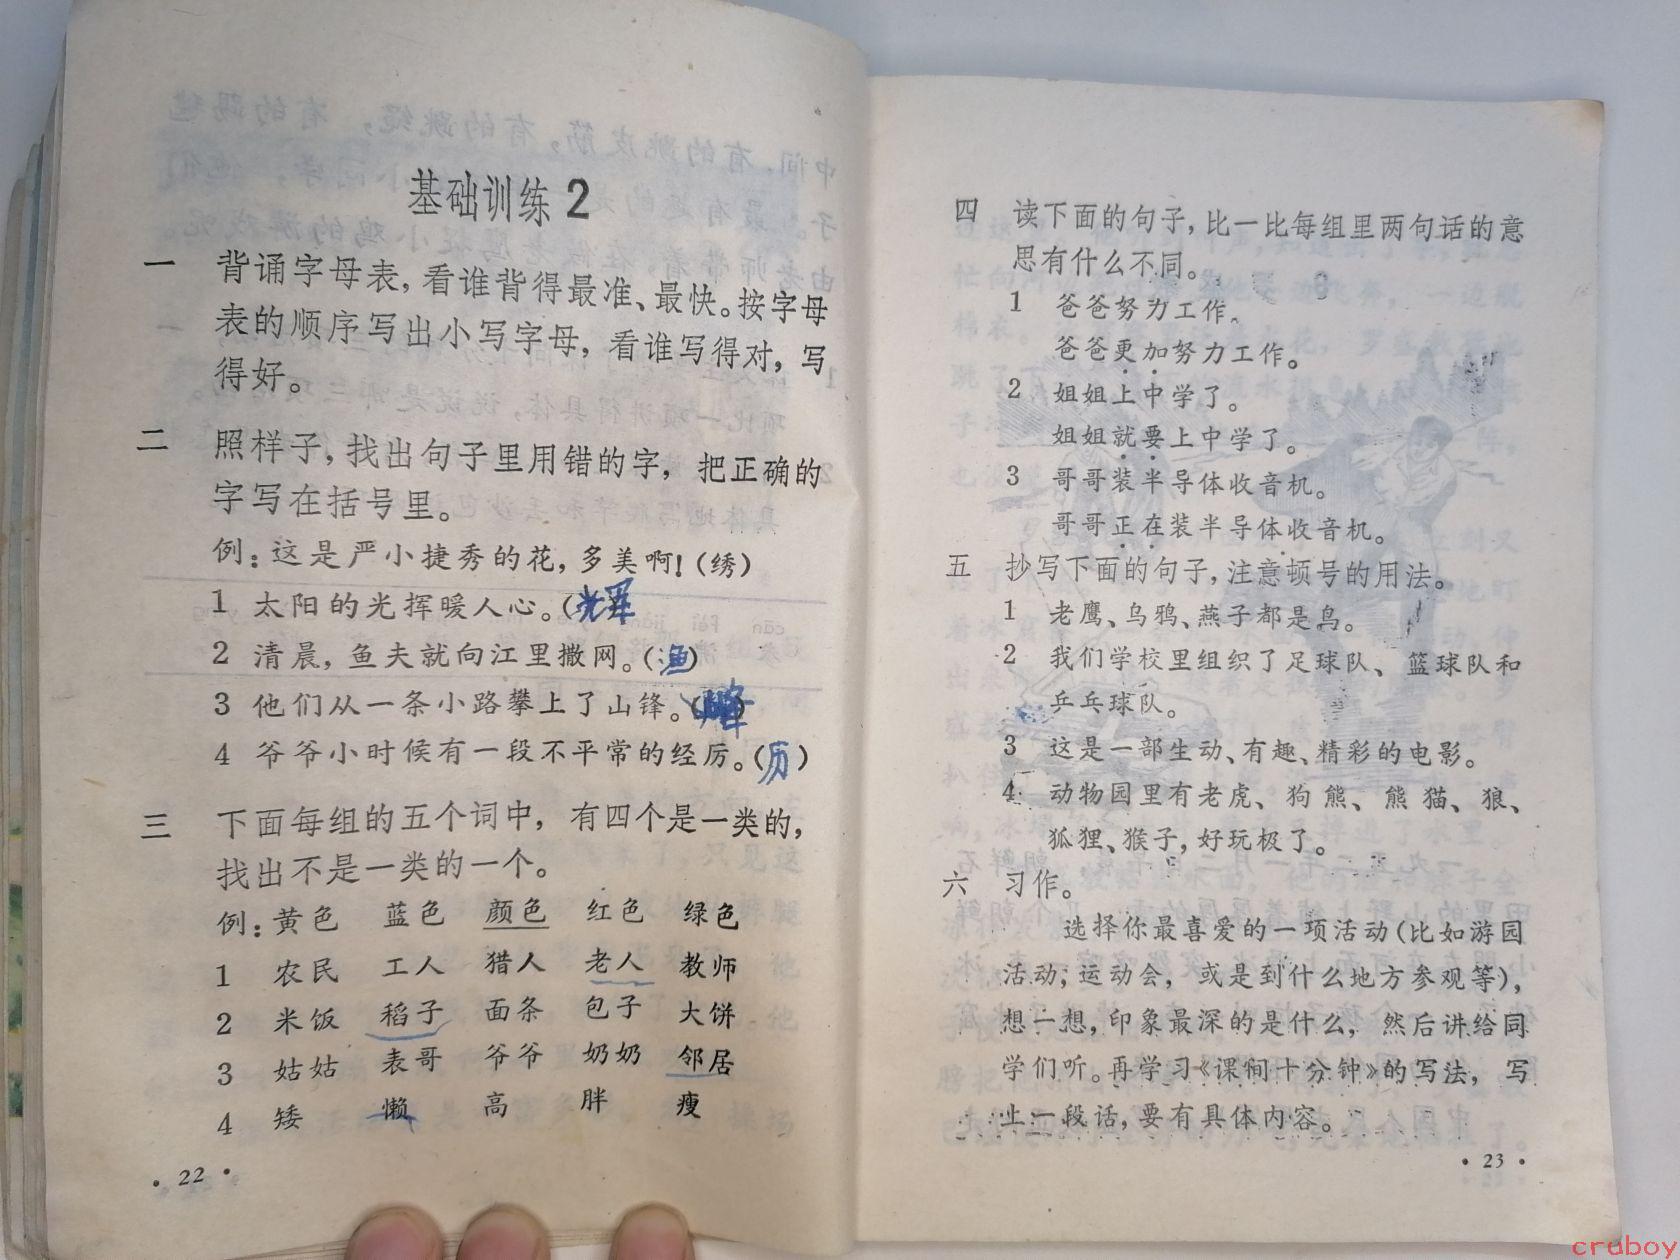 基础训练2
一 背诵字母表，看谁背得最准、最快。按字母
表的顺序写出小写字母，看谁写得对，写
得好。
二 照样子，找出句子里用错的字，把正确的
字写在括号里。
例：这是严小捷秀的花，多美啊！（绣）
1 太阳的光挥暖人心。（辉）
2 清晨，鱼夫就向江里撒网。（渔）
3 他们从一条小路攀上了山锋。（峰）
4 爷爷小时候有一段不平常的经厉。（历）
三 下面每组的五个词中，有四个是一类的，
找出不是一类的一个。
例：黄色 蓝色 颜色 红色 绿色
1 农民 工人 猎人 老人 教师
2 米饭 稻子 面条 包子 大饼
3 姑姑 表哥 爷爷 奶奶 邻居
4 矮 懒 高 胖 瘦
·22·
四 读下面的句子，比一比每组里两句话的意
思有什么不同。
1 爸爸努力工作。
爸爸更加努力工作。
2 姐姐上中学了。
姐姐就要上中学了。
3 哥哥装半导体收音机。
哥哥正在装半导体收音机。
五 抄写下面的句子，注意顿号的用法。
1 老鹰、乌鸦、燕子都是鸟。
2 我们学校里组织了足球队、篮球队和
乒乓球队。
3 这是一部生动、有趣、精彩的电影。
4 动物园里有老虎、狗熊、熊猫、狼、
狐狸、猴子，好玩极了。
六 习作。
选择你最喜爱的一项活动（比如游园
活动，运动会，或是到什么地方参观等），
想一想，印象最深的是什么，然后讲给同
学们听。再学习《课间十分钟》的写法，写
上一段话，要有具体内容。
·23·
cruboy